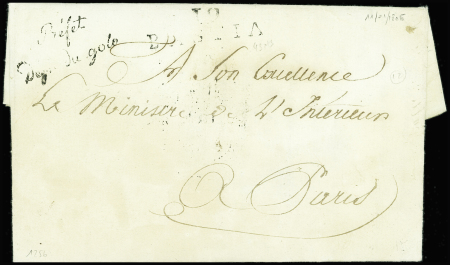 19
BASTIA
Préfet
Dep. du golo
A Son Excellence
Le Ministre de L'Intérieur
A Paris